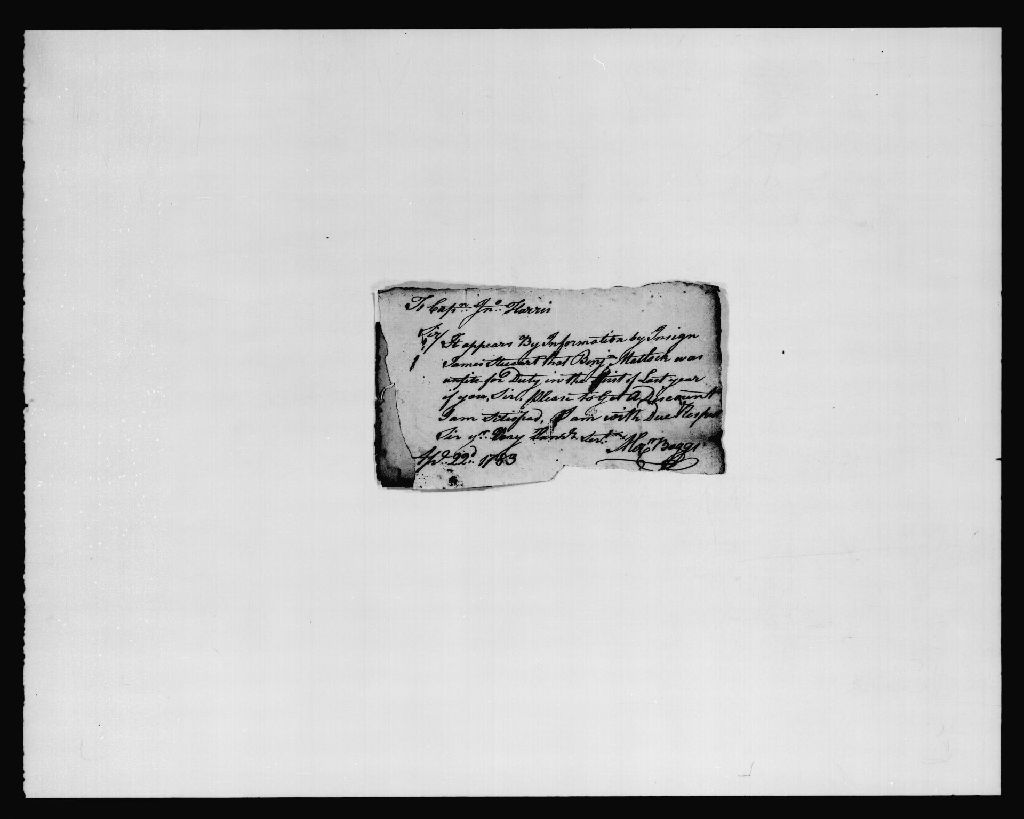 To Capn. Jno. Harris
Sir/ It appears By Information by Insign
James Stewart that Benjn. Matlock was
unfite for Duty in the first of Last year
if you, Sir, please to Get A Discount
I am Satisfied, I am with Due Respect
Sir yr. Very Humbe. Servt.
Alexr. Boggs
Apl. 22d. 1783